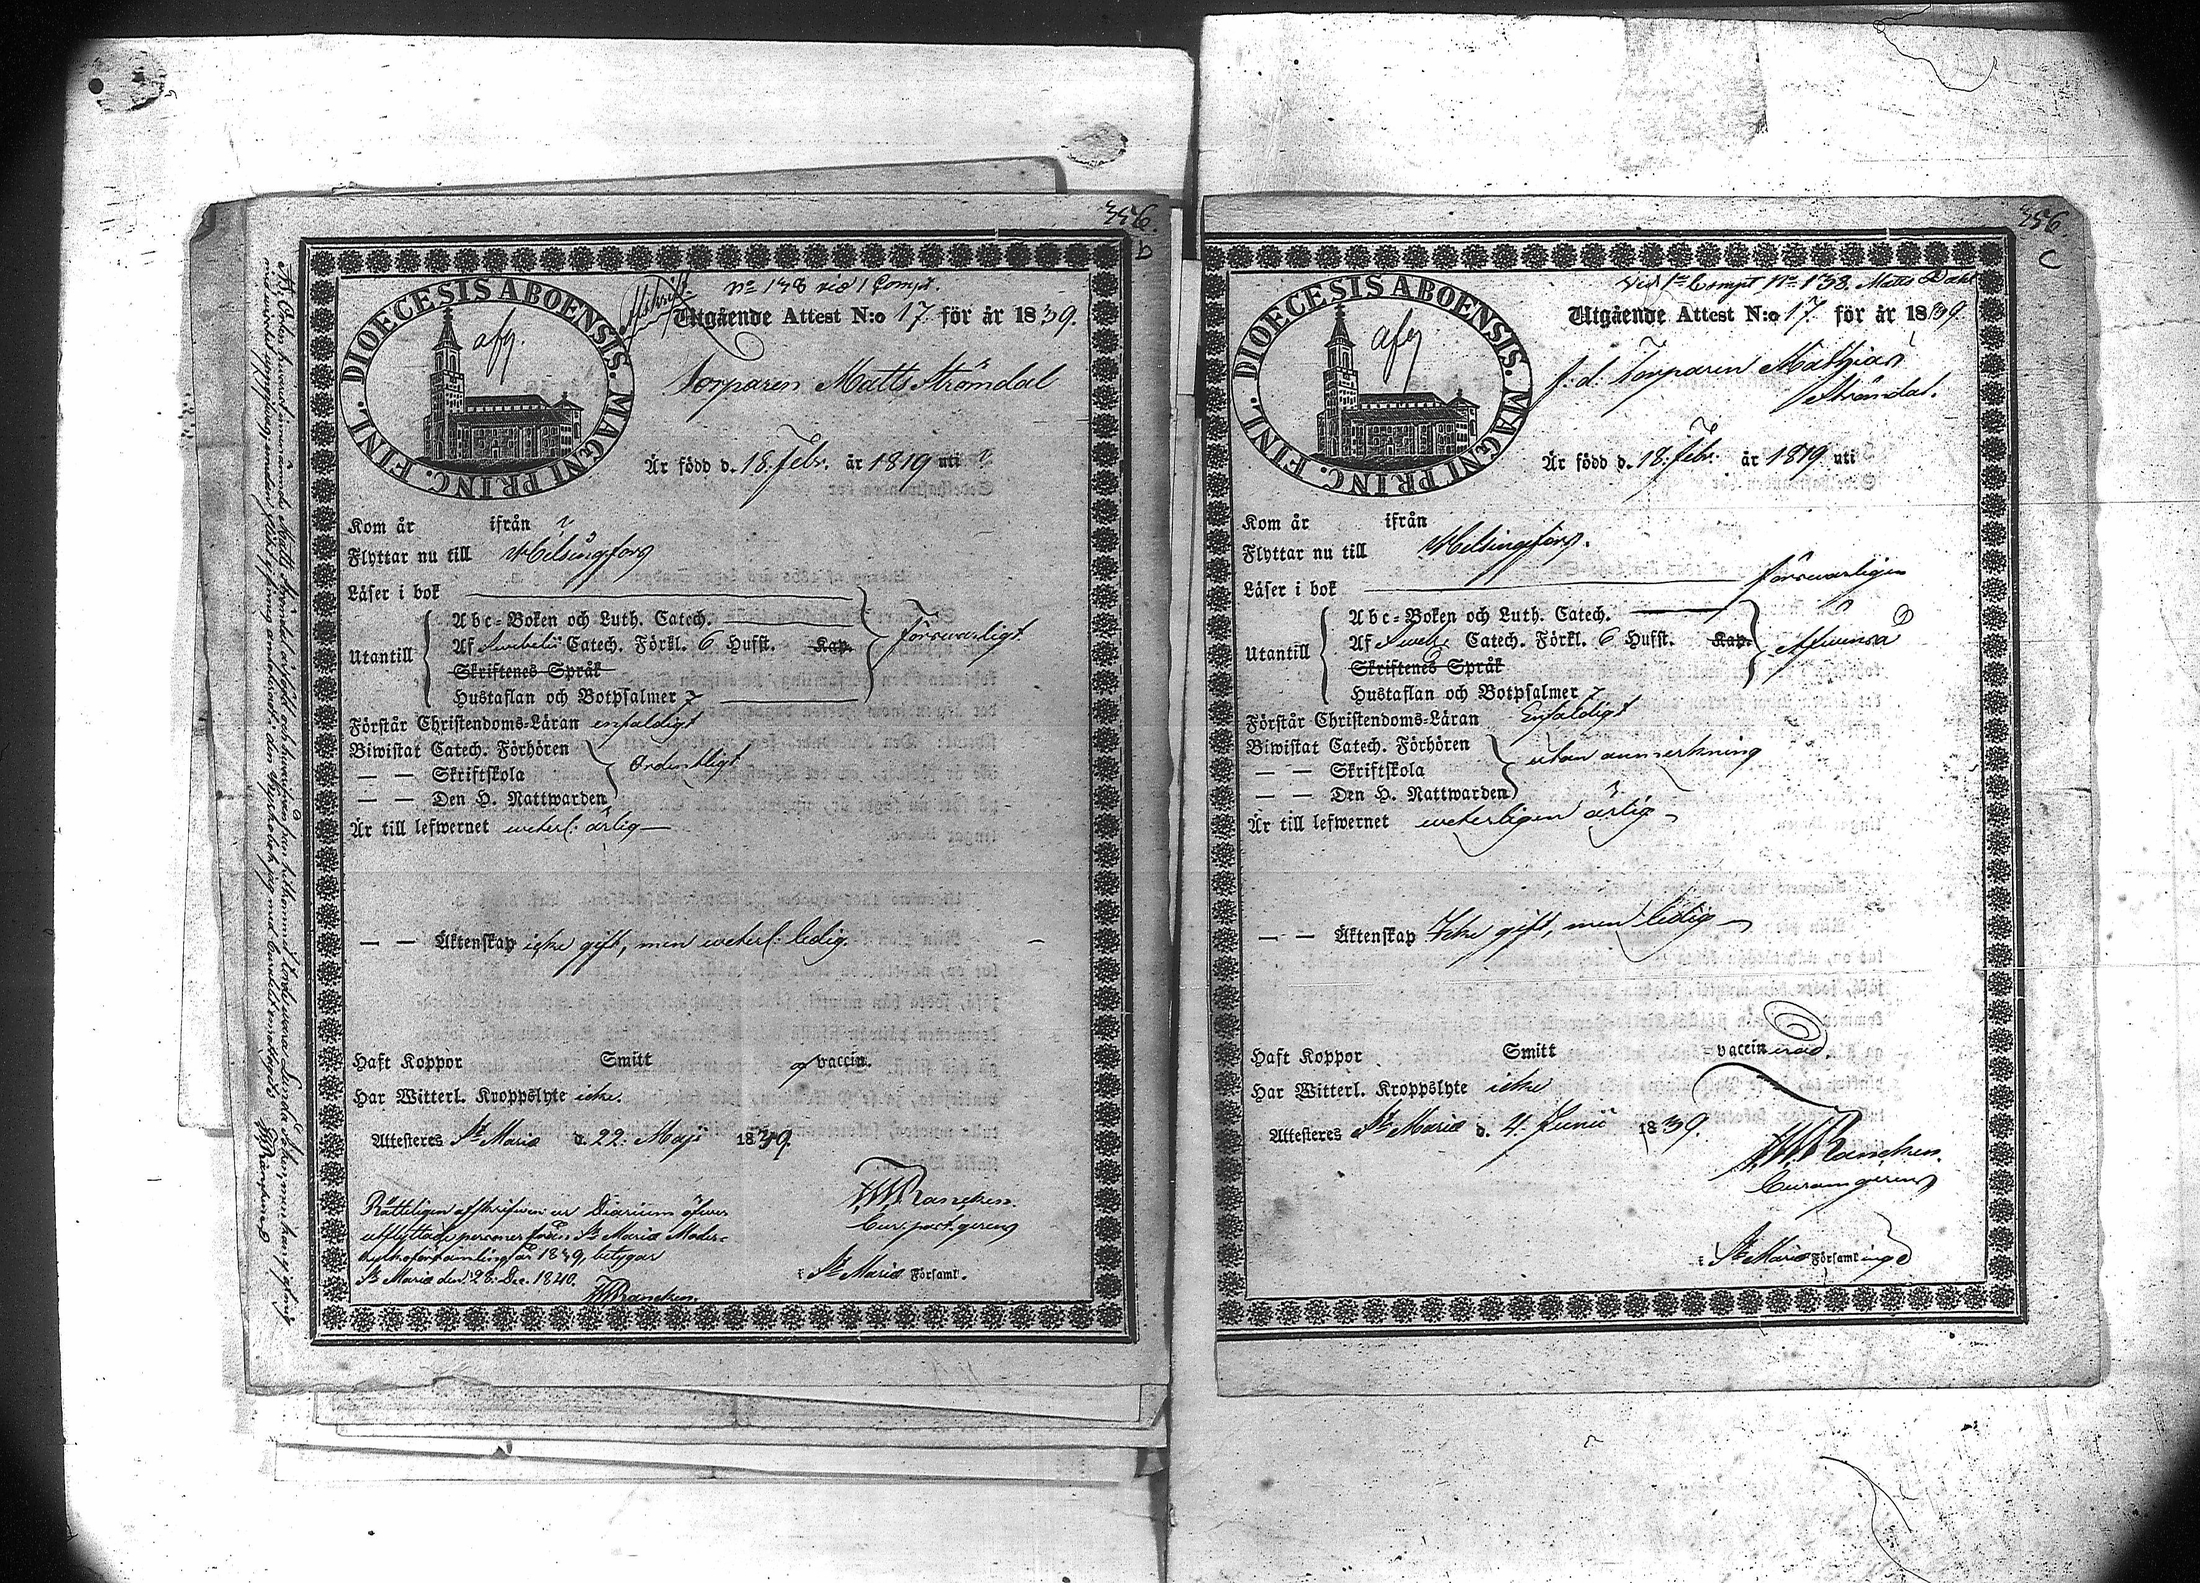 356.
b
DIOECESIS ABOENSIS. MAGNI PRINC. FINL.
afg.
Afskrift
No 138 vid 1 Compt.
Utgående Attest N:o 17 för år 1839.
Torparen Matts Ströndal
Är född d. 18. Febr. år 1819 uti
Kom år ifrån
Flyttar nu till Helsingfors
Läser i bok
Utantill
Abc-Boken och Luth. Catech.
Af Svebelii Catech. Förkl. 6 Hufst. Kap.
Skriftenes Språk
Hustaflan och Botpsalmer 7
försvarligt
Förstår Christendoms-Läran enfaldigt
Biwistat Catech. Förhören
— — Skriftskola
— — Den H. Nattwarden
Ordentligt
Är till lefwernet weterl: ärlig
— — Äktenskap icke gift, men weterl: ledig.
Haft Koppor Smitt vaccin.
Har Witterl. Kroppslyte icke.
Attesteres St Marie d. 22. Maji 1839.
Rancken.
Cur: past: gerens
i St Marie Församl.
Rätteligen afskrifven ur Diarium öfver
utflyttade personer från St Marie Moder-
kyrkoförsamling år 1839, betygar
St Marie den 28. Dec. 1840.
Rancken.
356.
c
DIOECESIS ABOENSIS. MAGNI PRINC. FINL.
afg
Vid 1a Compt No 138. Matts Dahl
Utgående Attest N:o 17. för år 1839.
f. d. Torparen Mathias
Ströndal.
Är född d. 18. Febr. år 1819 uti
Kom år ifrån
Flyttar nu till Helsingfors.
Läser i bok försvarligen
Utantill
Abc-Boken och Luth. Catech.
Af Sveb. Catech. Förkl. 6 Hufst. Kap.
Skriftenes Språk
Hustaflan och Botpsalmer 7
Förstår Christendoms-Läran Enfaldigt
Biwistat Catech. Förhören
— — Skriftskola
— — Den H. Nattwarden
utan anmerkning
Är till lefwernet weterligen ärlig
— — Äktenskap Icke gift, men ledig
Haft Koppor Smitt vaccinerad.
Har Witterl. Kroppslyte icke
Attesteres St Marie d. 4. Junii 1839.
Rancken.
Curam gerens
i St Marie Församling